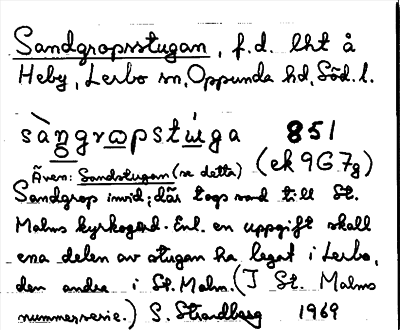 Sandgropsstugan, f.d. lht å
Heby, Lerbo sn, Oppunda hd, Söd. l.
sàngrωpstu̍ga 851
Även: Sandstugan (se detta) (ek 9G 7g)
Sandgrop invid; där togs sand till St.
Malms kyrkogård. Enl. en uppgift skall
ena delen av stugan ha legat i Lerbo,
den andra i St. Malm. (I St. Malms
nummerserie.) S. Strandberg 1969